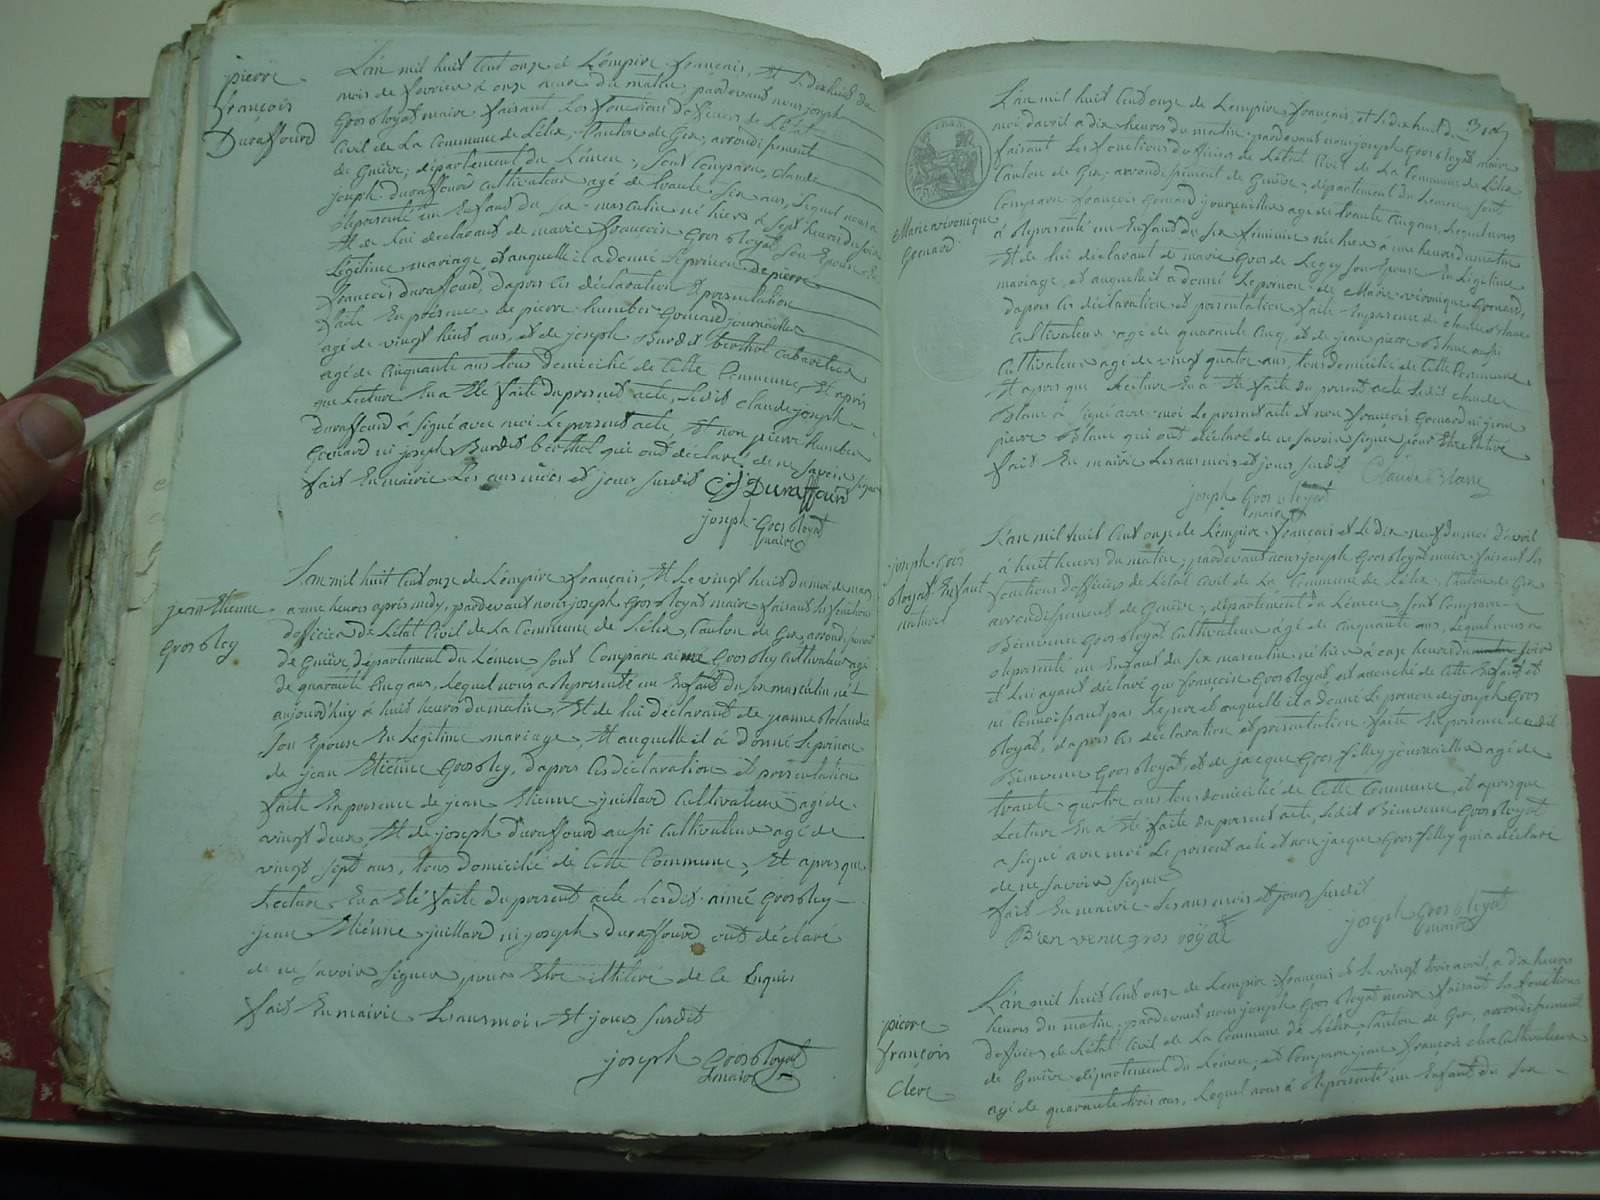 pierre
françois
Duraffourd
L'an mil huit cent onze de L'empire français, et le dixhuit du
mois de fevrier à onze heures du matin, pardevant nous joseph
Grosbloyat maire faisant Les fonctions d'officier de L'état
Civil de La Commune de Lélex, Canton de Gex, arrondissement
de Genêve, département du Léman, sont Comparu, Claude
joseph duraffourd Cultivateur agé de trante six ans, Lequel nous a
représenté un Enfant du sexe masculin né hier à sept heures du soir
Et de lui déclarant de marie françoise Gros bloyat son Epouse En
Légitime mariage et auquelle il a donné Le prénom de pierre
françois duraffourd, d'après les déclaration Et présentation
faite En présence de pierre humber Grenard journailler
agé de vingt huit ans, et de joseph Burdet berthol Cabaretier
agé de Cinquante ans tous domicilié de Cette Commune, Et après
que Lecture En a Eté faite du present acte, Ledit Claude joseph
Duraffourd à signé avec moi Le present acte, Et non pierre humber
Grenard ni joseph Burdet berthol qui ont déclaré de ne savoir signer
fait En mairie Les ans mois et jours susdit C J Duraffourd
joseph Gros bloyat
maire
jean Etienne
gros bley
L'an mil huit Cent onze de L'empire français Et Le vingt huit du moi de mars
a une heures après midy, pardevant nous joseph Gros bloyat maire faisant les fonctions
d'officier de L'état Civil de La Commune de Lélex, Canton de Gex arrondissement
de Genêve département du Léman, sont Comparu aimé Gros bley Cultivateur agé
de quarante Cinq ans, Lequel nous a représenté un Enfant du sexe masculin né
aujourd'huy à huit heures du matin, Et de lui déclarant de jeanne Rolandez
son Epouse En Légitime mariage, Et auquelle il à donné Le prénom
de jean Etienne Gros bley, d'après les déclaration et présentation
faite En présence de jean Etienne juillard Cultivateur agé de
vingt deux Et de joseph duraffourd aussi Cultivateur agé de
vingt sept ans, tous domicilié de Cette Commune, Et après que
Lecture En a Eté faite du present acte Lesdit aimé Gros bley
jean Etienne juillard ni joseph Duraffourd ont déclaré
de ne savoir signer, pour Etre illitéré de Ce Enquis
fait En mairie Les ans moi Et jours susdit
joseph Gros bloyat
maire
Marie veronique
Grenard
L'an mil huit Cent onze de L'empire français, et Le dix huit du
moi d'avril a dix heures du matin, pardevant nous joseph Gros bloyat maire
faisant Les fonctions d'officier de L'état Civil de La Commune de Lélex
Canton de Gex, arrondissement de Genêve, département du Léman, sont
Comparu françois Grenard journaillier agé de trante Cinq ans, Lequel nous
à représenté un Enfant du sex féminin née hier a une heures du matin
Et de lui déclarant de marie Gros de Legey son Epouse En Légitime
mariage, et auquelle il à donné Le prénom de Marie véronique Grenard,
d'après les déclaration et présentation faite En présence de claude Blanc
Cultivateur agé de quarante Cinq, et de jean pierre Blanc aussi
Cultivateur agé de vingt quatre ans, tous domicilié de Cette Commune
Et apres que Lecture En a Eté faite du present acte Ledit claude
Blanc à signé avec moi Le present acte et non françois Grenard ni jean
pierre Blanc qui ont déclaré de ne savoir signer pour Etre illitéré
fait En mairie Les ans mois et jours susdit Claude Blanc
joseph Gros bloyat
maire
joseph Gros
bloyat Enfant
naturel
L'an mil huit Cent onze de L'empire français et Le dix neuf du moi d'avril
à huit heures du matin, pardevant nous joseph Gros bloyat maire faisant les
fonctions d'officier de L'état Civil de La Commune de Lélex Canton de Gex
arrondissement de Genêve, département du Léman, sont Comparu
Bienvenu Gros bloyat Cultivateur agé de Cinquante ans, Lequel nous a
représenté un Enfant du sex masculin né hier à onze heures du soir
et lui ayant déclaré que françoise Gros bloyat, est accouché de Cette Enfant et
ne Connoissant pas Le pere et auquelle il a donné Le prénom de joseph Gros
bloyat, d'après les déclaration et présentation faite En présence dudit
Bienvenu Gros bloyat, et de jacque Gros filley journaillier agé de
trante quatre ans tous domicilié de Cette Commune, et apres que
Lecture En a Eté faite du present acte, Ledit Bienvenu Gros bloyat
a signé avec moi Le present acte et non jacque Gros filley qui a déclaré
de ne savoir signer
fait En mairie Les ans mois et jours susdit
Bien venu gros royat
joseph Gros bloyat
maire
pierre
françois
Clerc
L'an mil huit Cent onze de L'empire français et Le vingt trois avril, a dix heures
heures du matin, pardevant nous joseph Gros bloyat maire faisant les fonctions
d'officier de L'état Civil de La Commune de Lélex Canton de Gex, arrondissement
de Genêve département du Léman, est Comparu jean françois clerc Cultivateur
agé de quarante trois ans, Lequel nous à représenté un Enfant du sex